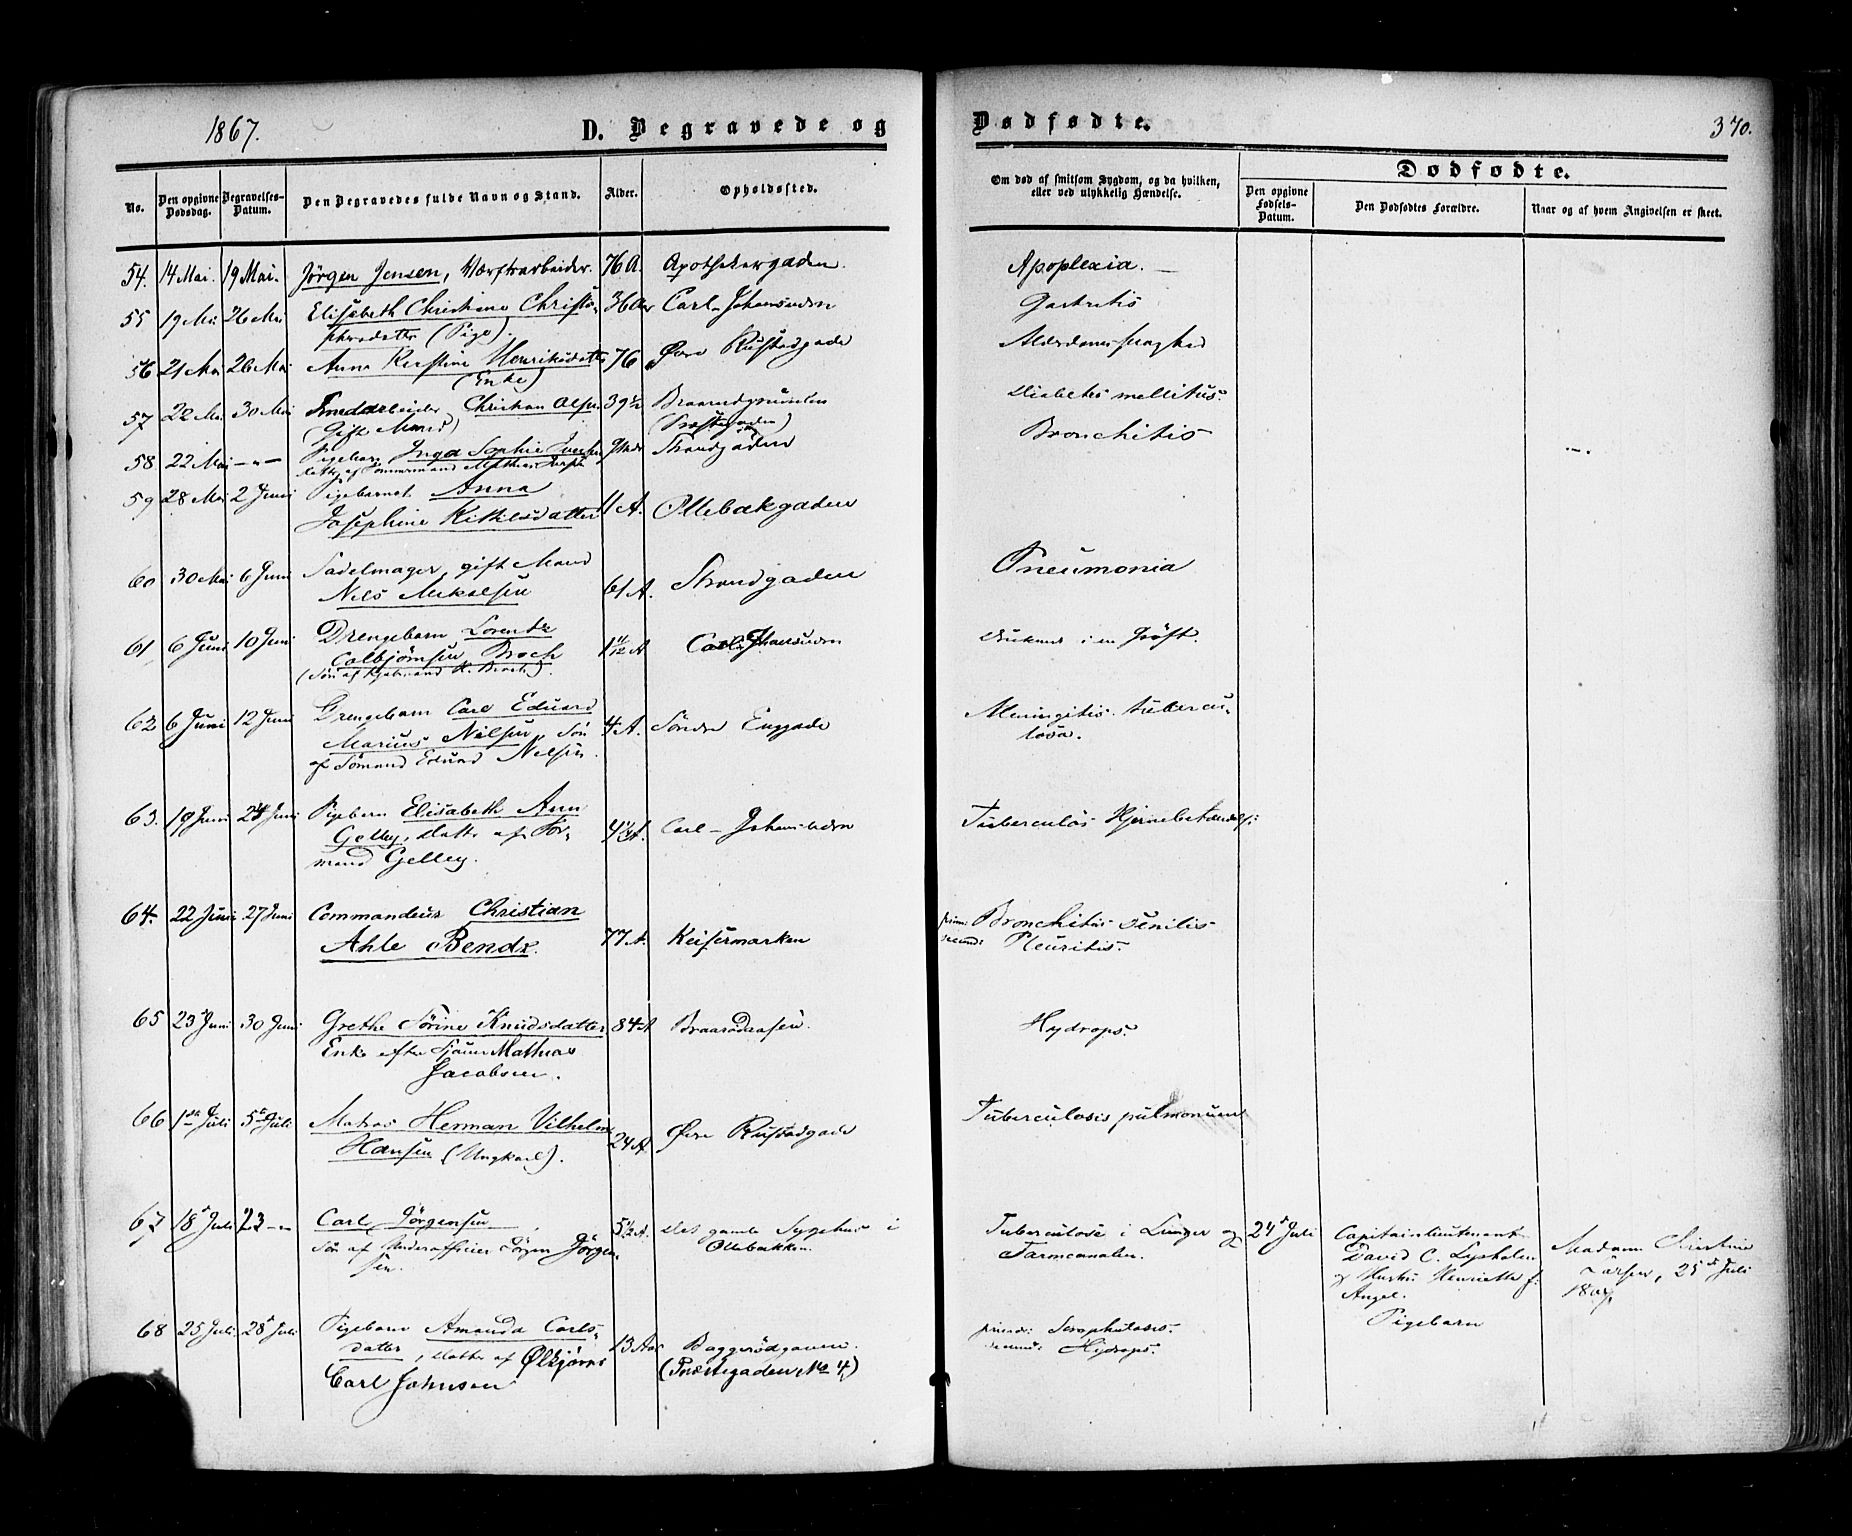 1867.
D. Begravede og
Dødfødte.
370.
No.
Den opgivne Dødsdag.
Begravelses-Datum.
Den Begravedes fulde Navn og Stand.
Alder.
Opholdssted.
Om død af smitsom Sygdom, og da hvilken,
eller ved ulykkelig Hændelse.
Dødfødte.
Den opgivne Fødsels-Datum.
Den Dødfødtes Forældre.
Naar og af hvem Angivelsen er skeet.
54. 14 Mai. 19 Mai. Jørgen Jensen, Værftsarbeider. 76 A. Apothekergaden. Apoplexia. —
55 19 Mai 26 Mai Elisabeth Christiane Christo- 36 Aar Carl-Johansuden Gastritis
phersdatter (Pige).
56 21 Mai 26 Mai Anne Kirstine Henriksdatter 76 Øvre Rustadgade Alderdomssvaghed
(Enke)
57 22 Mai 30 Mai Christian Olsen 39½ Diabetes mellitus.
(Gift Mand)
58 22 Mai — " — Pigebarn Inga Sophie Strandgaden Bronchitis
datter af Tømmermand Mathias
59 28 Mai 2 Juni Pigebarnet Anna
Josephine Kittilsdatter 11 A. Ollebakgaden
60 30 Mai 6 Juni Sadelmager, gift Mand Pneumonia
Nils Mikalsen 61 A. Strandgaden
61, 6 Juni 10 Juni Drengebarn Lorentz 1 11/12 A Carl Johansuden Druknet i en Grøft.
Colbjørnsen Broch
(Søn af Kjøbmand K. Broch).
62 6 Juni 12 Juni Drengebarn Carl Eduard Meningitis tubercu-
Marius Nilsen, Søn 4 A. Søndre Enggade losa.
af Sømand Eduard Nelsen.
63. 19 Juni 24 Juni Pigebarn Elisabeth Ann Carl-Johansuden Tuberculøs Hjernebetændelse
Gelley, Datter af For-
mand Gelley.
64. 22 Juni 27 Juni Commandeur Christian primo: Bronchitis senilis
Ahle Bendz. 77 A. Keisermarken secundo: Pleuritis.
65 23 Juni 30 Juni Grethe Sørine Knudsdatter 84 A Braarødaasen. Hydrops.
Enke efter Mathias
Jacobsen.
66 1ste Juli 5te Juli Matros Herman Vilhelm Tuberculosis pulmonum
Hansen (Ungkarl). 24 A. Øvre Rustadgade
67 18 Juli 23 — " Carl Jørgensen 5½ A. Det gamle Sygehus i Tuberculose i Lunger og 24 Juli Capitainlieutenant Madam Kristine
Søn af Underofficier Jørgen Jørgen- Ollebakken. Tarmcanalen. David C. Lysholm Larsen, 25 Juli
sen. og Hustru Henriette f. 1867.
Angel.
Pigebarn
68 25 Juli 28 Juli Pigebarn Amanda Carls- 13 Aar Baggerødgaven. primo: Scrophulosis.
datter, Datter af Ølkjører (Præstegaden No 4) secundo: Hydrops.
Carl Johnsen